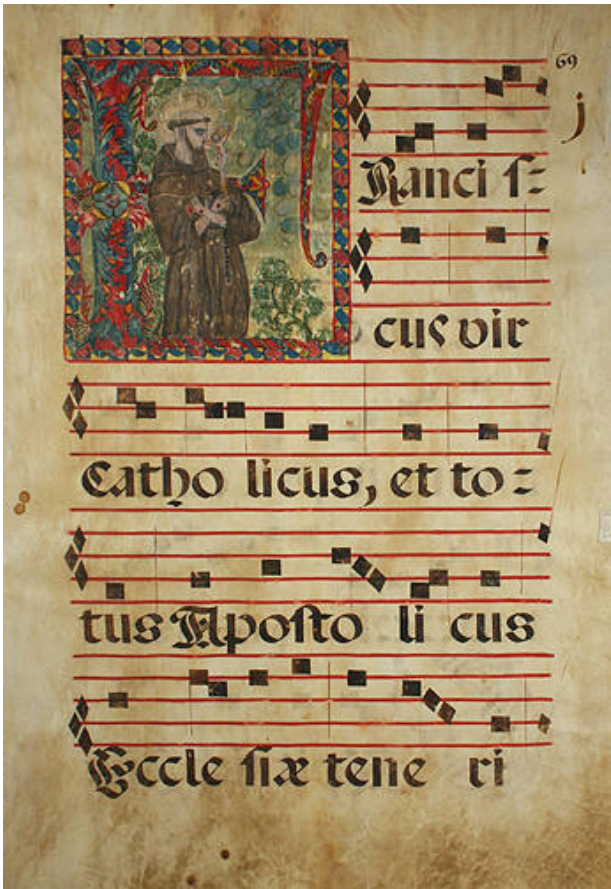 69
j
FRanci ſ=
cus vir
Catho licus, et to=
tus Apoſto li cus
Eccle ſiæ tene ri